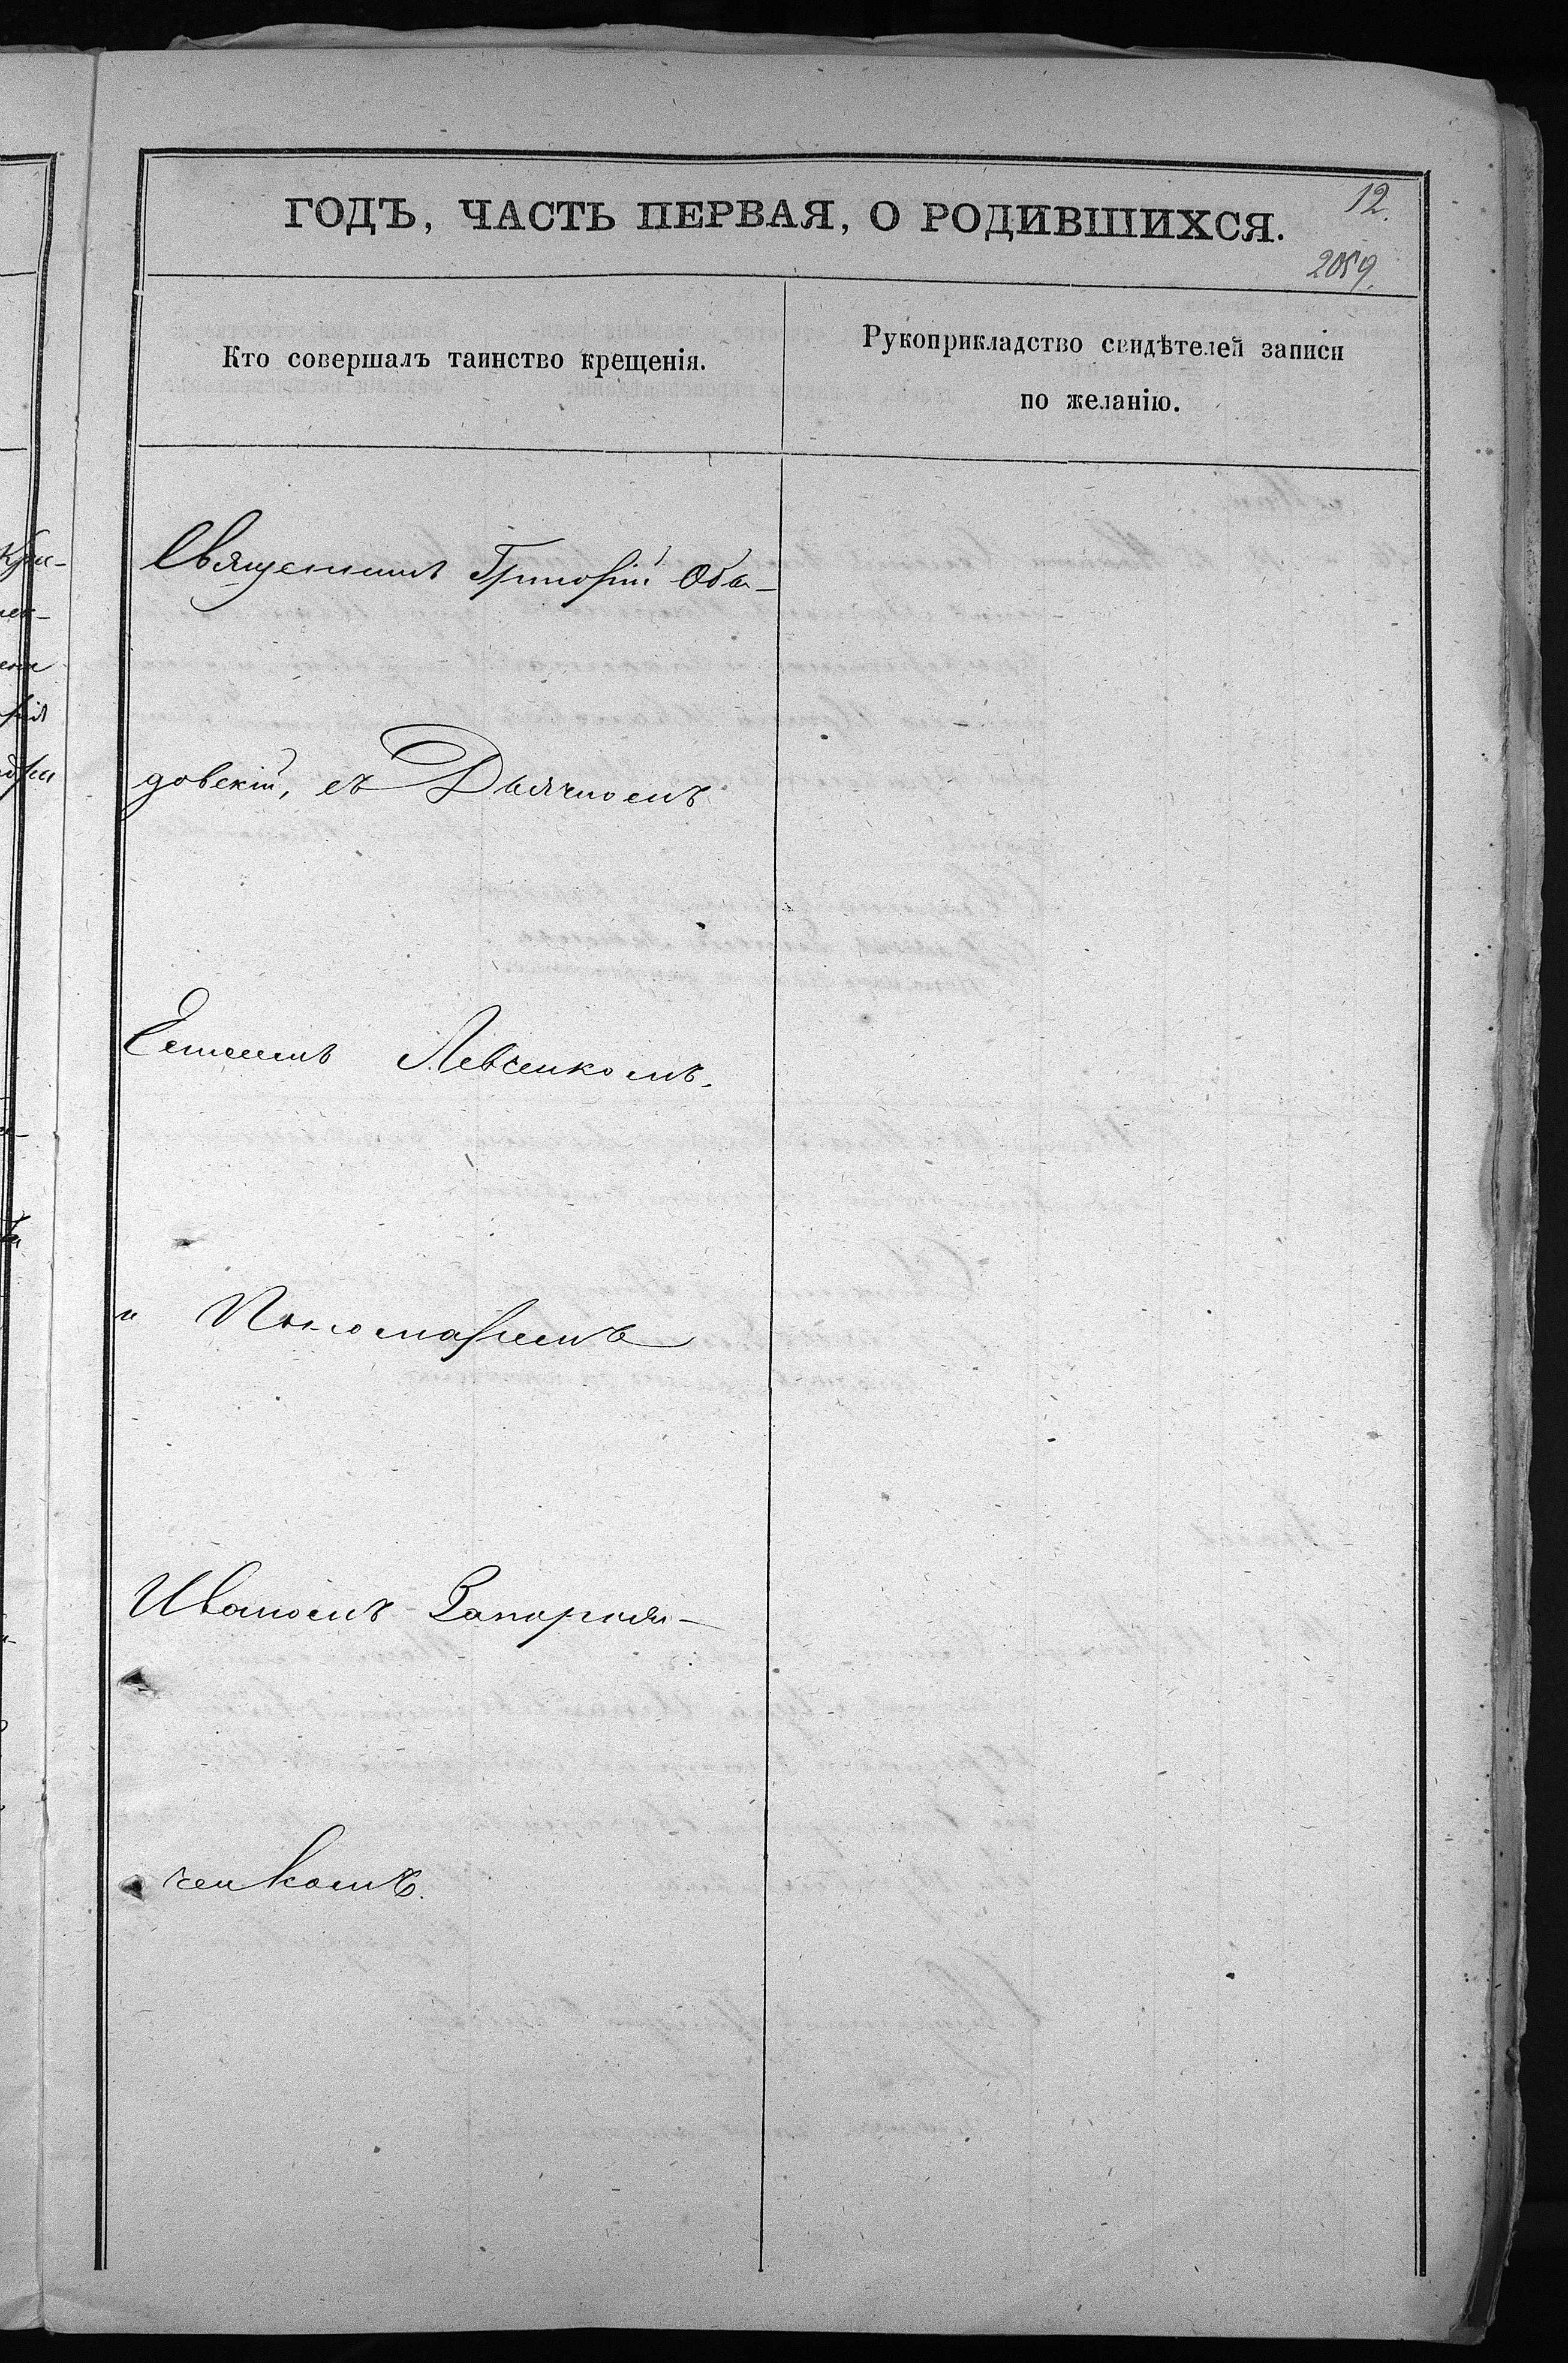 ГОДЪ, ЧАСТЬ ПЕРВАЯ, О РОДИВШИХСЯ.
12.
2059.
Кто совершалъ таинство крещенія.
Рукоприкладство свидѣтелей записи
по желанію.
Священникъ Григорій Оба-
довскій, съ Дьячкомъ
Левченкомъ.
и Пономаремъ
Иваномъ Запорож-
ченкомъ.